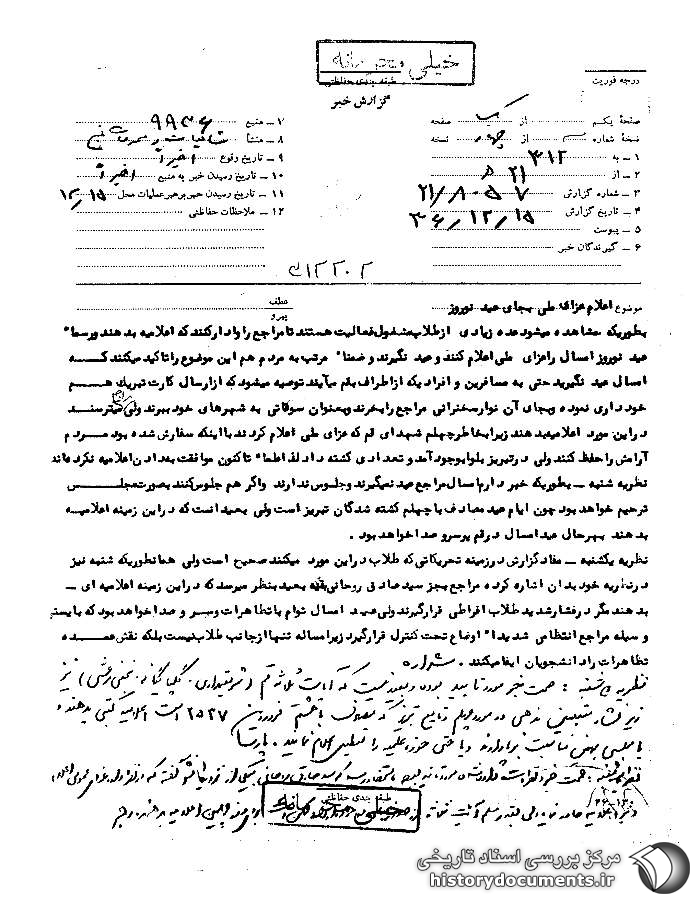 خیلی محرمانه
طبقه بندی حفاظتی
درجه فوریت
گزارش خبر
صفحه یکم از یک صفحه
نسخه شماره از چهار نسخه
۱ ـ به ۳۱۲
۲ ـ از ۲۱ ه
۳ ـ شماره گزارش ۲۱/۸۰۵۷
۴ ـ تاریخ گزارش ۳۶/۱۲/۱۵
۵ ـ پیوست
۶ ـ گیرندگان خبر
۷ ـ منبع ۹۹۳۶
۸ ـ منشأ
۹ ـ تاریخ وقوع اخیراً
۱۰ ـ تاریخ رسیدن خبر به منبع اخیراً
۱۱ ـ تاریخ رسیدن خبر برهبر عملیات محل ۱۲/۱۵
۱۲ ـ ملاحظات حفاظتی
موضوع اعلام عزای ملی بجای عید نوروز
عطف
پیرو
بطوریکه مشاهده میشود عده زیادی از طلاب مشغول فعالیت هستند تا مراجع را وادار کنند که اعلامیه بدهند ورسما"
عید نوروز امسال را عزای ملی اعلام کنند و عید نگیرند و ضمنا" مرتب به مردم هم این موضوع را تاکید میکنند کـه
امسال عید نگیرید حتی به مسافرین و افرادیکه از اطراف بقم میآیند توصیه میشود که از ارسال کارت تبریك هـم
خود داری نموده و بجای آن نوار سخنرانی مراجع را بخرند و بعنوان سوقاتی به شهرهای خود ببرند ولی میترسند
در این مورد اعلامیه بدهند زیرا بخاطر چهلم شهدای قم که عزای ملی اعلام کردند با اینکه سفارش شده بود مـردم
آرامش را حفظ کنند ولی در تبریز بلوا بوجود آمد و تعدادی کشته داد لذا تاکنون موافقت بدادن اعلامیه نکرده‌اند
نظریه شنبه ـ بطوریکه خبر دارم امسال مراجع عید نمیگیرند و جلوس ندارند واگر هم جلوس کنند بصورت مجلـس
ترحیم خواهد بود چون ایام عید مصادف با چهلم کشته شدگان تبریز است ولی بعید است که در این زمینه اعلامیـه
بدهند بهرحال عید امسال در قم پر سرو صدا خواهد بود .
نظریه یکشنبه ـ مفاد گزارش در زمینه تحریکاتی که طلاب در این مورد میکنند صحیح است ولی همانطوریکه شنبه نیز
در نظریه خود بدان اشاره کرده مراجع بجز سید صادق روحانی بقیه بعید بنظر میرسد که در این زمینه اعلامیه ای ـ
بدهند مگر در فشار شدید طلاب افراطی قرار گیرند ولی عید امسال توام با تظاهرات و سر و صدا خواهد بود که بایستی
و سیله مراجع انتظامی شدیدا" اوضاع تحت کنترل قرار گیرد زیرا مساله تنها از جانب طلاب نیست بلکه نقش عمـده
تظاهرات را دانشجویان ایفا میکنند .
نظریه : صحت خبر مورد تایید بوده و بعید نیست که آیات ثلاثه قم (شریعتمداری ـ گلپایگانی ـ نجفی مرعشی) نیز
زیر فشار متعصبین مذهبی در مورد چهلم وقایع تبریز که مصادف با هشتم فروردین ۲۵۳۷ است اعلامیه کتبی بدهند و
یا مجلسی بهمین مناسبت برگزار و یا حتی حوزه علمیه را تعطیل اعلام نمایند . پارسا
طبقه بندی حفاظتی
خیلی محرمانه
مرکز بررسی اسناد تاریخی
historydocuments.ir